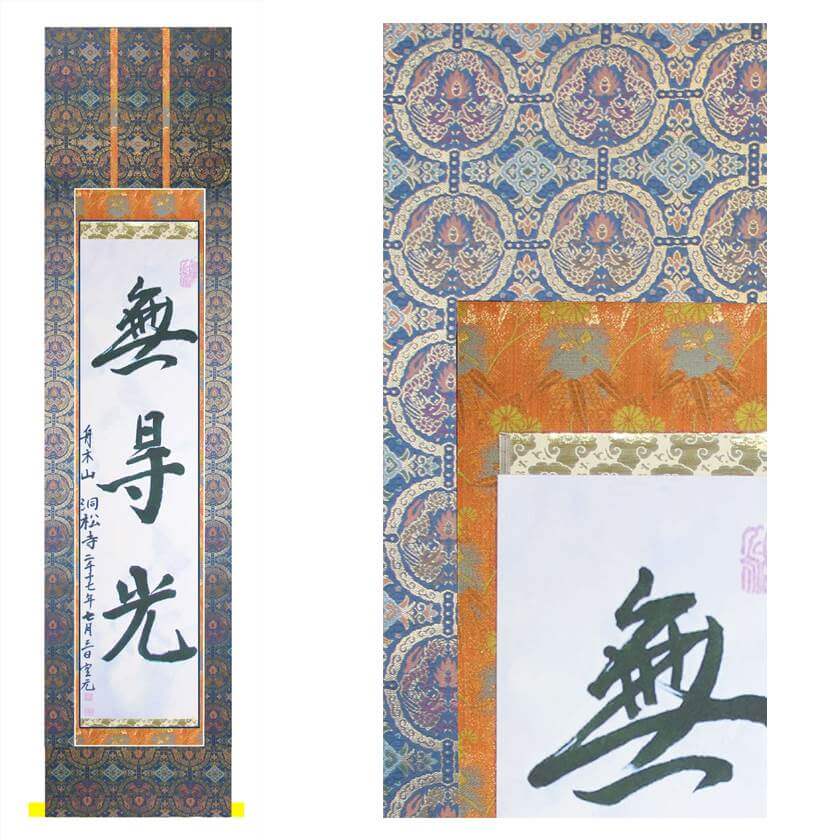 無㝵光
舟木山 洞松寺 二千十七年 七月三日
無